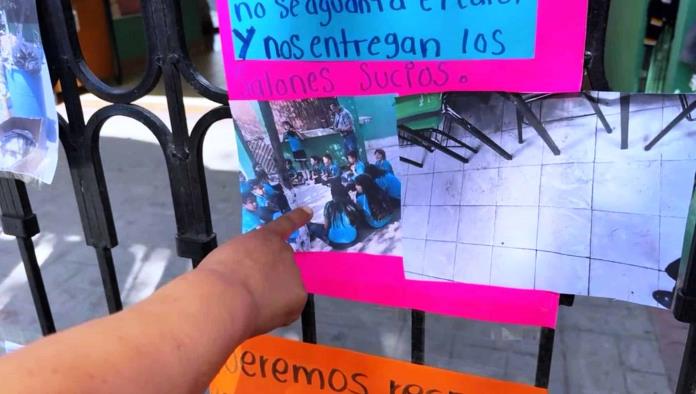 no se aguanta el calor
Y nos entregan los
salones sucios.
Queremos